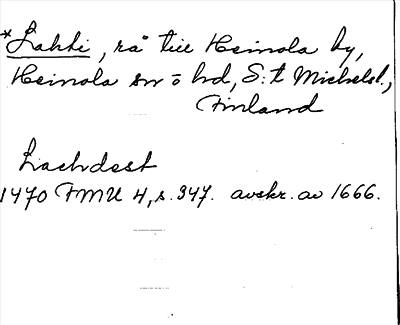 *Lahti, rå till Heinola by,
Heinola sn o hd, S:t Michelsl.,
Finland
Lachdest
1470 FMU 4, s. 347. avskr. av 1666.